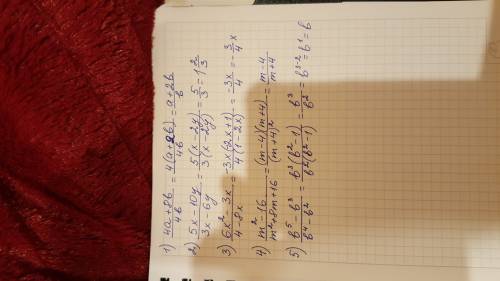 1) (4a+8b)/(4b) = (4(a+2b))/(4b) = (a+2b)/b
2) (5x-10y)/(3x-6y) = (5(x-2y))/(3(x-2y)) = 5/3 = 1 2/3
3) (6x²-3x)/(4-8x) = (-3x(-2x+1))/(4(1-2x)) = (-3x)/4 = -3/4 x
4) (m²-16)/(m²+8m+16) = ((m-4)(m+4))/((m+4)²) = (m-4)/(m+4)
5) (b⁵-b³)/(b⁴-b²) = (b³(b²-1))/(b²(b²-1)) = b³/b² = b³⁻² = b¹ = b